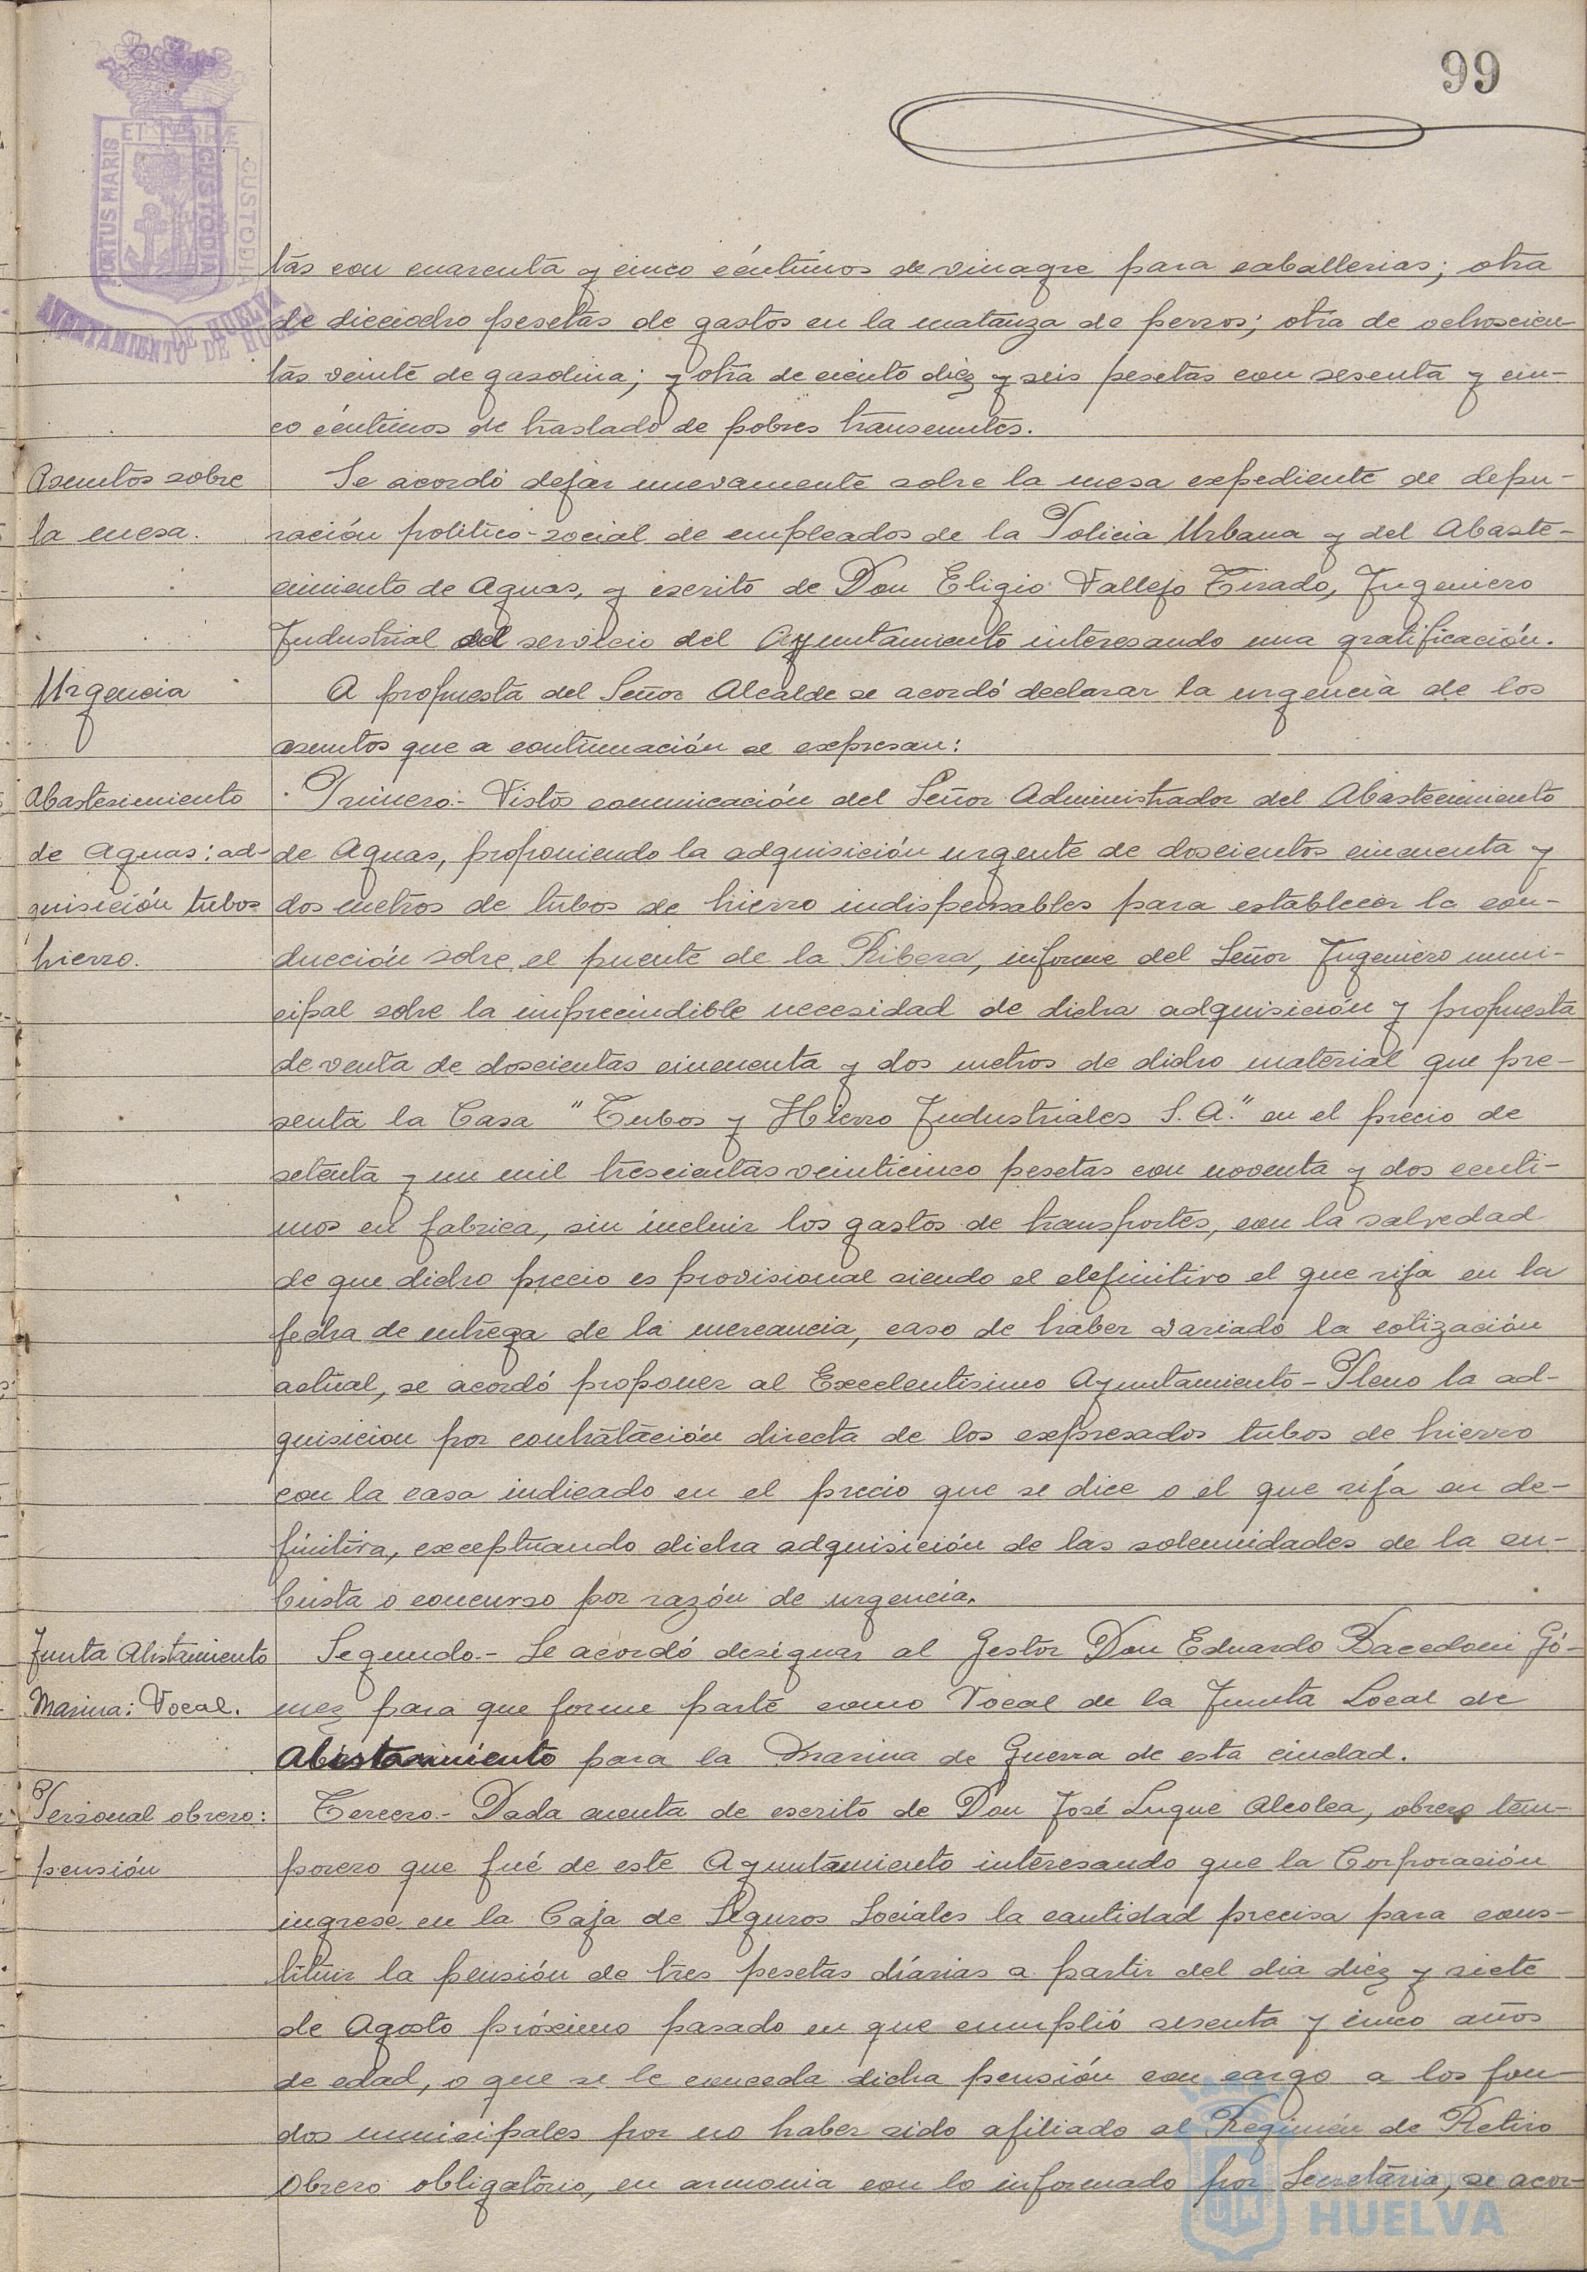 99
PORTUS MARIS
ET TERRÆ
CUSTODIA
AYUNTAMIENTO DE HUELVA
tas con cuarenta y cinco céntimos de vinagre para caballerias; otra
de dieciocho pesetas de gastos en la matanza de perros; otra de ochoscien-
tas veinte de gasolina; y otra de ciento diez y seis pesetas con sesenta y cin-
co céntimos de traslado de pobres transeuntes.
Asuntos sobre
la mesa.
Se acordó dejar nuevamente sobre la mesa expediente de depu-
ración politico-social de empleados de la Policia Urbana y del Abaste-
cimiento de Aguas, y escrito de Don Eligio Vallejo Tirado, Ingeniero
Industrial al servicio del Ayuntamiento interesando una gratificación.
Urgencia
A propuesta del Señor Alcalde se acordó declarar la urgencia de los
asuntos que a continuación se expresan:
Abastecimiento
de Aguas: ad-
quisición tubos
hierro.
Primero:- Vistos comunicación del Señor Administrador del Abastecimiento
de Aguas, proponiendo la adquisición urgente de doscientos cincuenta y
dos metros de tubos de hierro indispensables para establecer la con-
ducción sobre el puente de la Ribera, informe del Señor Ingeniero muni-
cipal sobre la imprecindible necesidad de dicha adquisición y propuesta
de venta de doscientas cincuenta y dos metros de dicho material que pre-
senta la Casa "Tubos y Hierro Industriales S.A." en el precio de
setenta y un mil trescientas veinticinco pesetas con noventa y dos centi-
mos en fabrica, sin incluir los gastos de transportes, con la salvedad
de que dicho precio es provisional siendo el definitivo el que rija en la
fecha de entrega de la mercancia, caso de haber variado la cotización
actual, se acordó proponer al Excelentisimo Ayuntamiento-Pleno la ad-
quisicion por contratación directa de los expresados tubos de hierro
con la casa indicado en el precio que se dice o el que rija en de-
finitiva, exceptuando dicha adquisición de las solemnidades de la su-
basta o concurso por razón de urgencia.
Junta Alistamiento
Marina: Vocal.
Segundo.- Se acordó designar al Gestor Don Eduardo Bacedoni Gó-
mez para que forme parte como Vocal de la Junta Local de
Alistamiento para la Marina de Guerra de esta ciudad.
Personal obrero:
pensión
Tercero.- Dada cuenta de escrito de Don José Luque Alcolea, obrero tem-
porero que fué de este Ayuntamiento interesando que la Corporación
ingrese en la Caja de Seguros Sociales la cantidad precisa para cons-
tituir la pensión de tres pesetas diárias a partir del dia diez y siete
de Agosto próximo pasado en que cumplió sesenta y cinco años
de edad, o que se le conceda dicha pensión con cargo a los fon-
dos municipales por no haber sido afiliado al Regimén de Retiro
Obrero obligatorio, en armonia con lo informado por Secretaria, se acor-
HUELVA